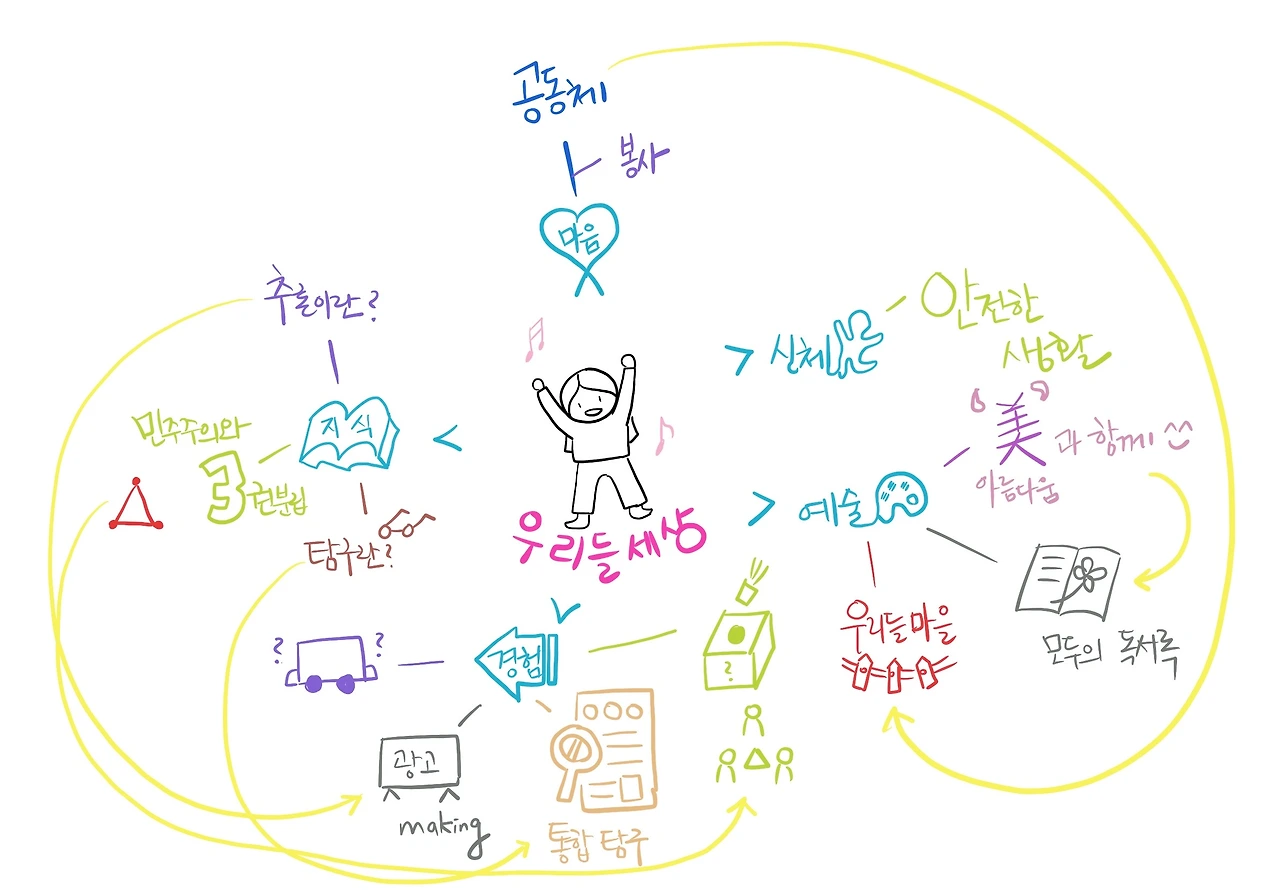 공동체
봉사
마음
추론이란?
안전한
생활
신체
지식
민주주의와
3권분립
美과 함께
아름다움
예술
탐구란?
우리들세상
우리들마을
모두의 독서록
? ?
경험
?
광고
making
통합 탐구